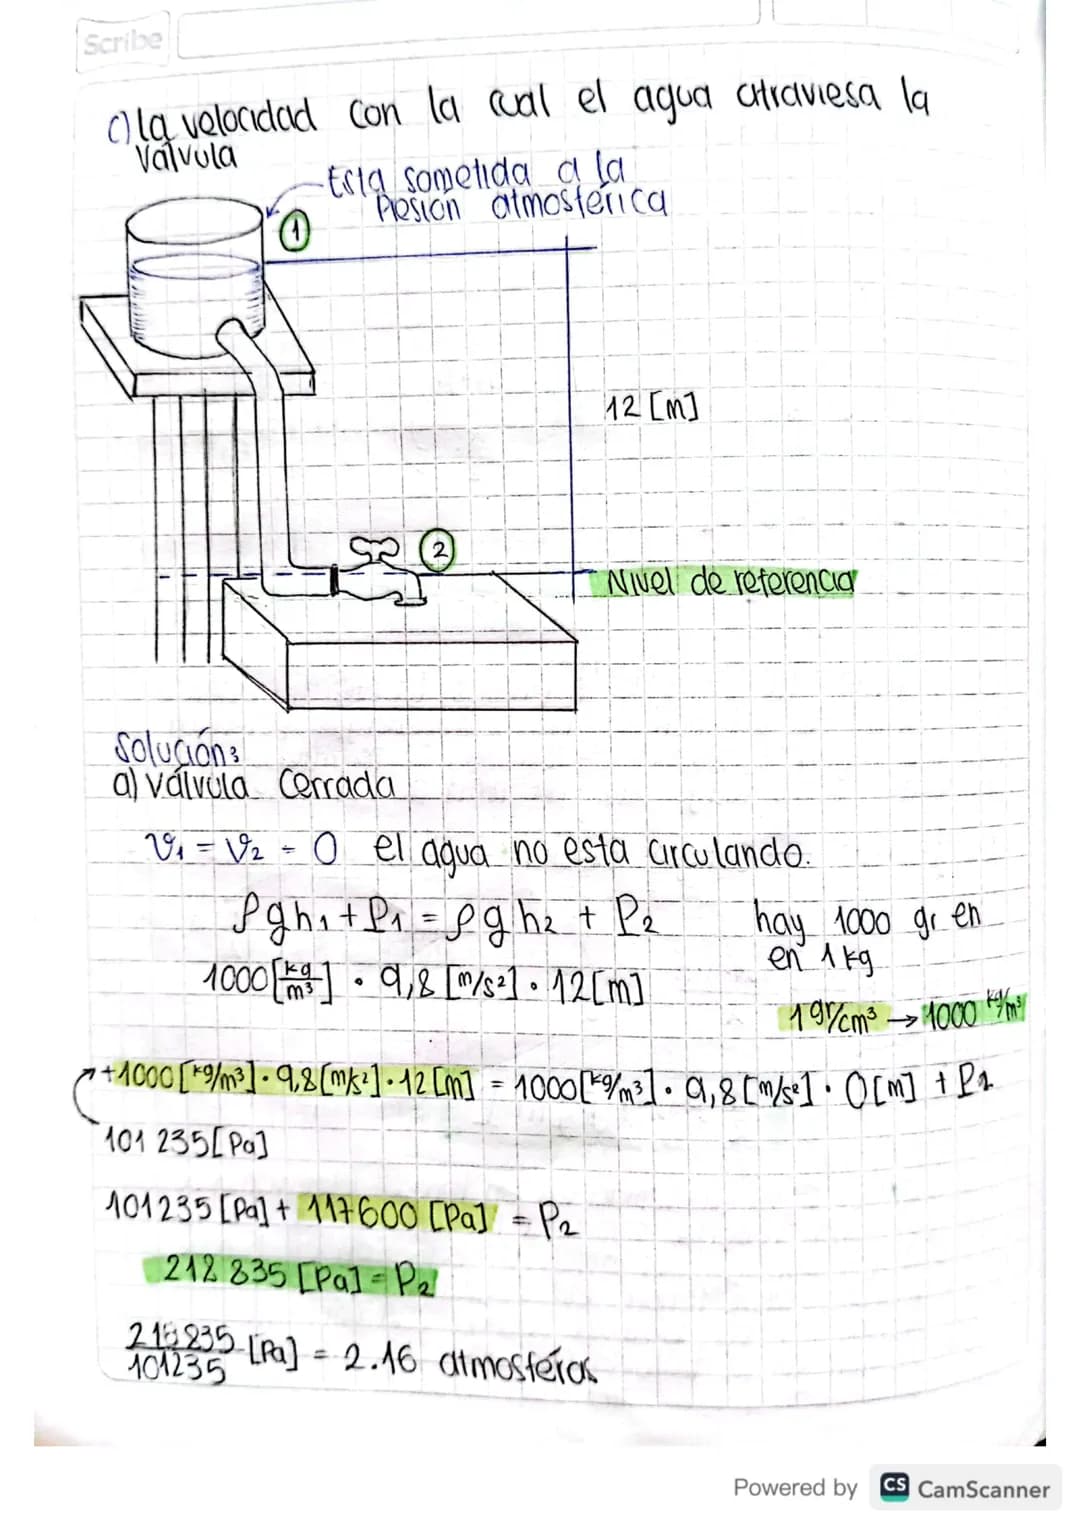 Scribe
c) la velocidad con la cual el agua atraviesa la
válvula
Esta sometida a la
Presión atmosférica
1
12 [m]
2
Nivel de referencia
Solución:
a) válvula cerrada
v₁ = v₂ = 0 el agua no esta circulando.
ρgh₁ + P₁ = ρgh₂ + P₂
hay 1000 gr en
en 1 kg
1000 [kg/m³] · 9,8 [m/s²] · 12[m]
1 gr/cm³ → 1000 kg/m³
+1000 [kg/m³] · 9,8 [m/s²] · 12 [m] = 1000[kg/m³] · 9,8 [m/s²] · 0[m] + P₂
101 235[Pa]
101235 [Pa] + 117600 [Pa] = P₂
218 835 [Pa] = P₂
218235/101235 [Pa] = 2.16 atmosferas
Powered by CS CamScanner